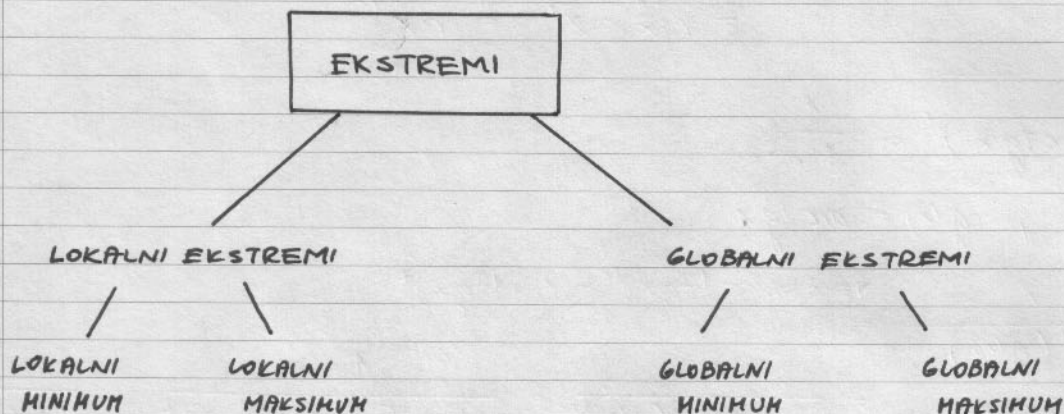 EKSTREMI
LOKALNI EKSTREMI
GLOBALNI EKSTREMI
LOKALNI
MINIMUM
LOKALNI
MAKSIMUM
GLOBALNI
MINIMUM
GLOBALNI
MAKSIMUM